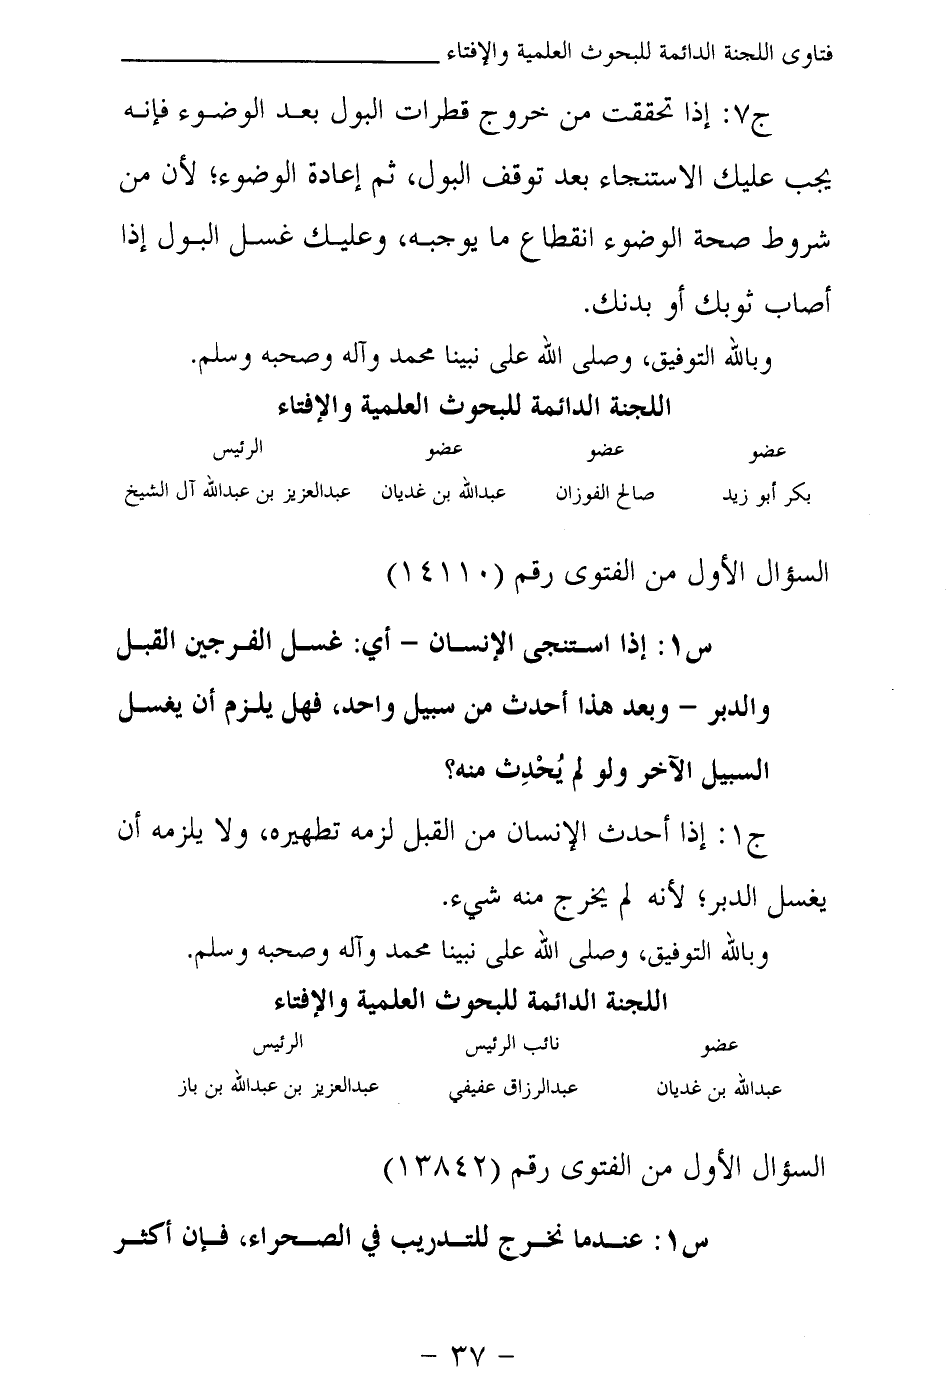 فتاوى اللجنة الدائمة للبحوث العلمية والإفتاء
ج٧: إذا تحققت من خروج قطرات البول بعد الوضوء فإنه
يجب عليك الاستنجاء بعد توقف البول، ثم إعادة الوضوء؛ لأن من
شروط صحة الوضوء انقطاع ما يوجبه، وعليك غسل البول إذا
أصاب ثوبك أو بدنك.
وبالله التوفيق، وصلى الله على نبينا محمد وآله وصحبه وسلم.
اللجنة الدائمة للبحوث العلمية والإفتاء
عضو عضو عضو الرئيس
بكر أبو زيد صالح الفوزان عبدالله بن غديان عبدالعزيز بن عبدالله آل الشيخ
السؤال الأول من الفتوى رقم (١٤١١٠)
س١: إذا استنجى الإنسان – أي: غسل الفرجين القبل
والدبر – وبعد هذا أحدث من سبيل واحد، فهل يلزم أن يغسل
السبيل الآخر ولو لم يُحْدِث منه؟
ج١: إذا أحدث الإنسان من القبل لزمه تطهيره، ولا يلزمه أن
يغسل الدبر؛ لأنه لم يخرج منه شيء.
وبالله التوفيق، وصلى الله على نبينا محمد وآله وصحبه وسلم.
اللجنة الدائمة للبحوث العلمية والإفتاء
عضو نائب الرئيس الرئيس
عبدالله بن غديان عبدالرزاق عفيفي عبدالعزيز بن عبدالله بن باز
السؤال الأول من الفتوى رقم (١٣٨٤٢)
س١: عندما نخرج للتدريب في الصحراء، فإن أكثر
– ٣٧ –